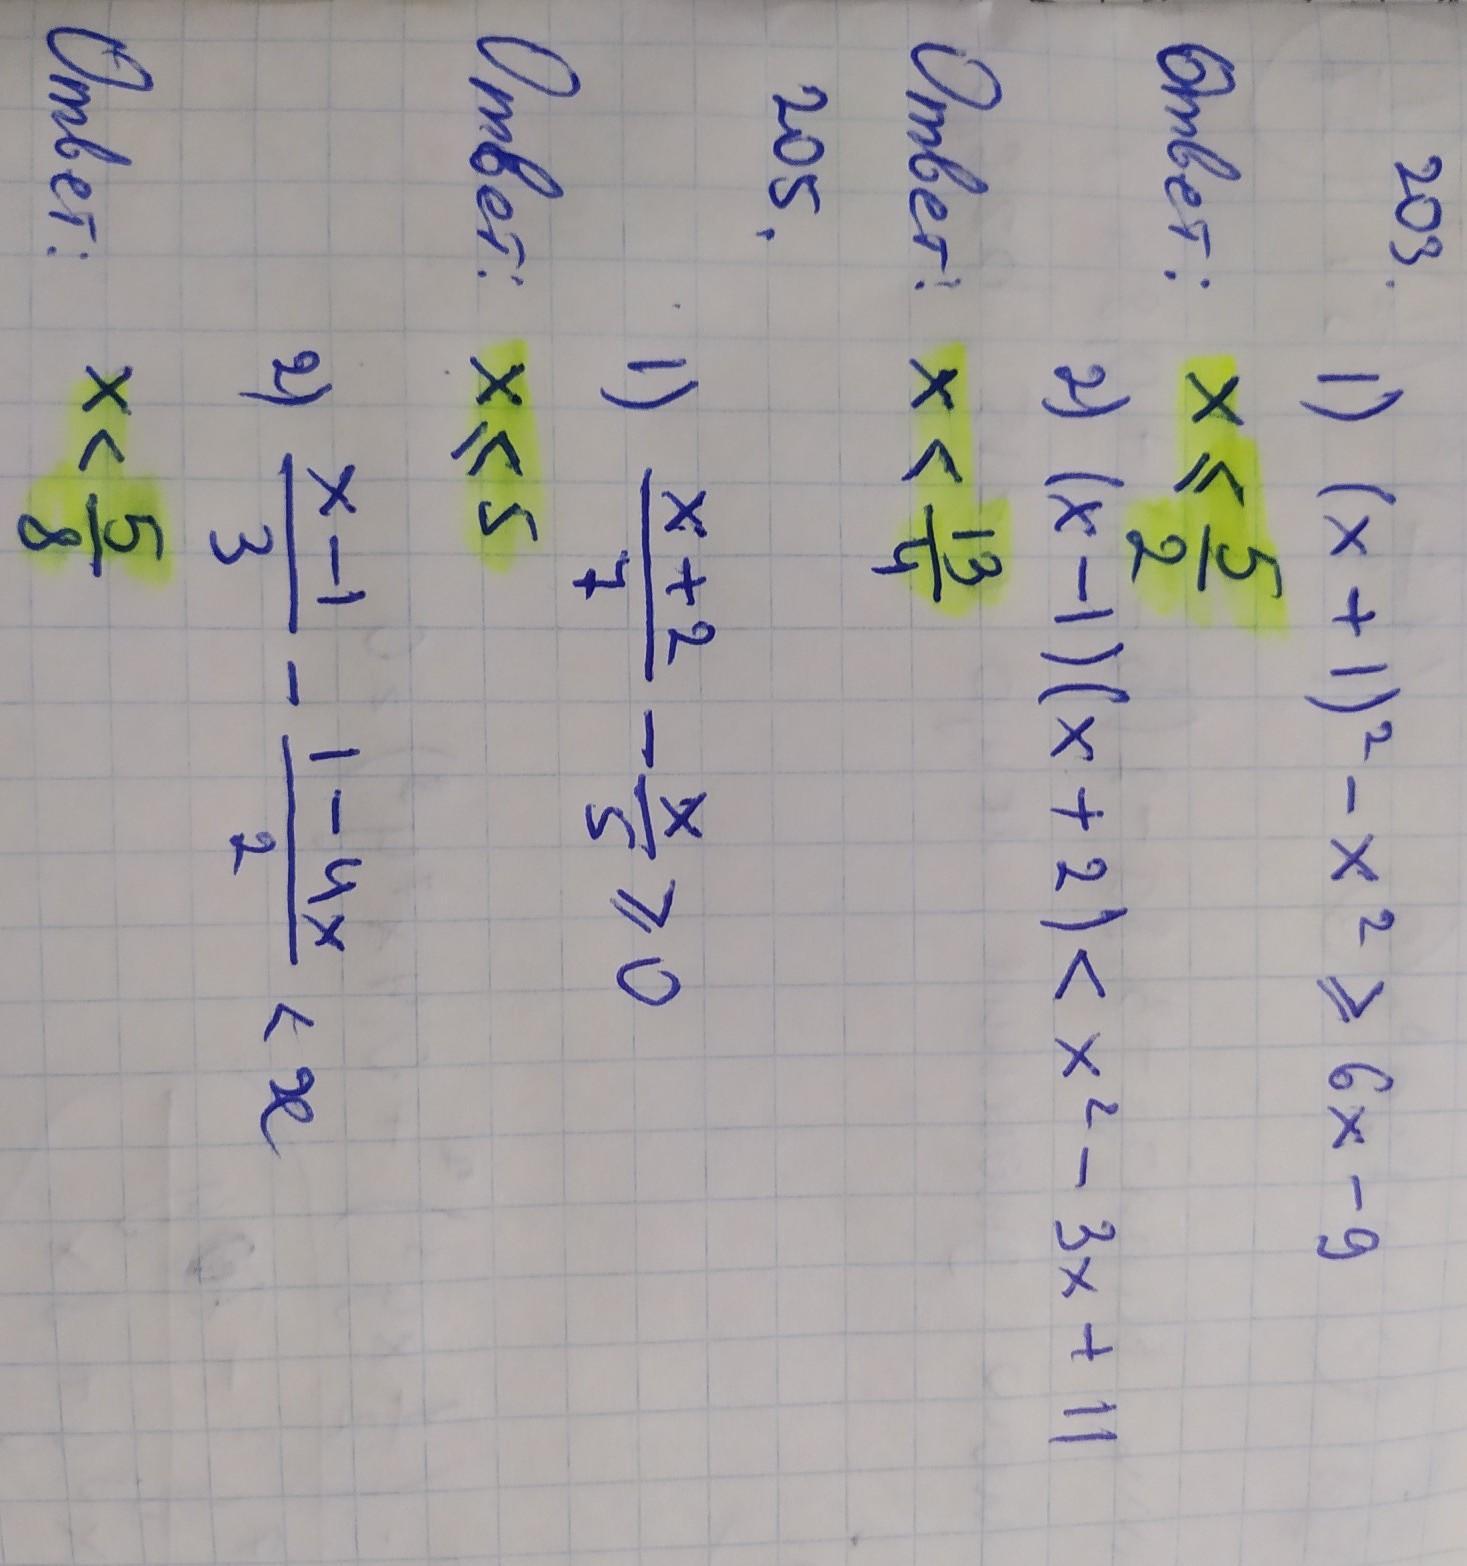 203. 1) (x + 1)² - x² ⩾ 6x - 9
Ответ: x ⩽ 5/2
2) (x - 1)(x + 2) < x² - 3x + 11
Ответ: x < 13/4
205. 1) (x + 2)/7 - x/5 ⩾ 0
Ответ: x ⩽ 5
2) (x - 1)/3 - (1 - 4x)/2 < x
Ответ: x < 5/8